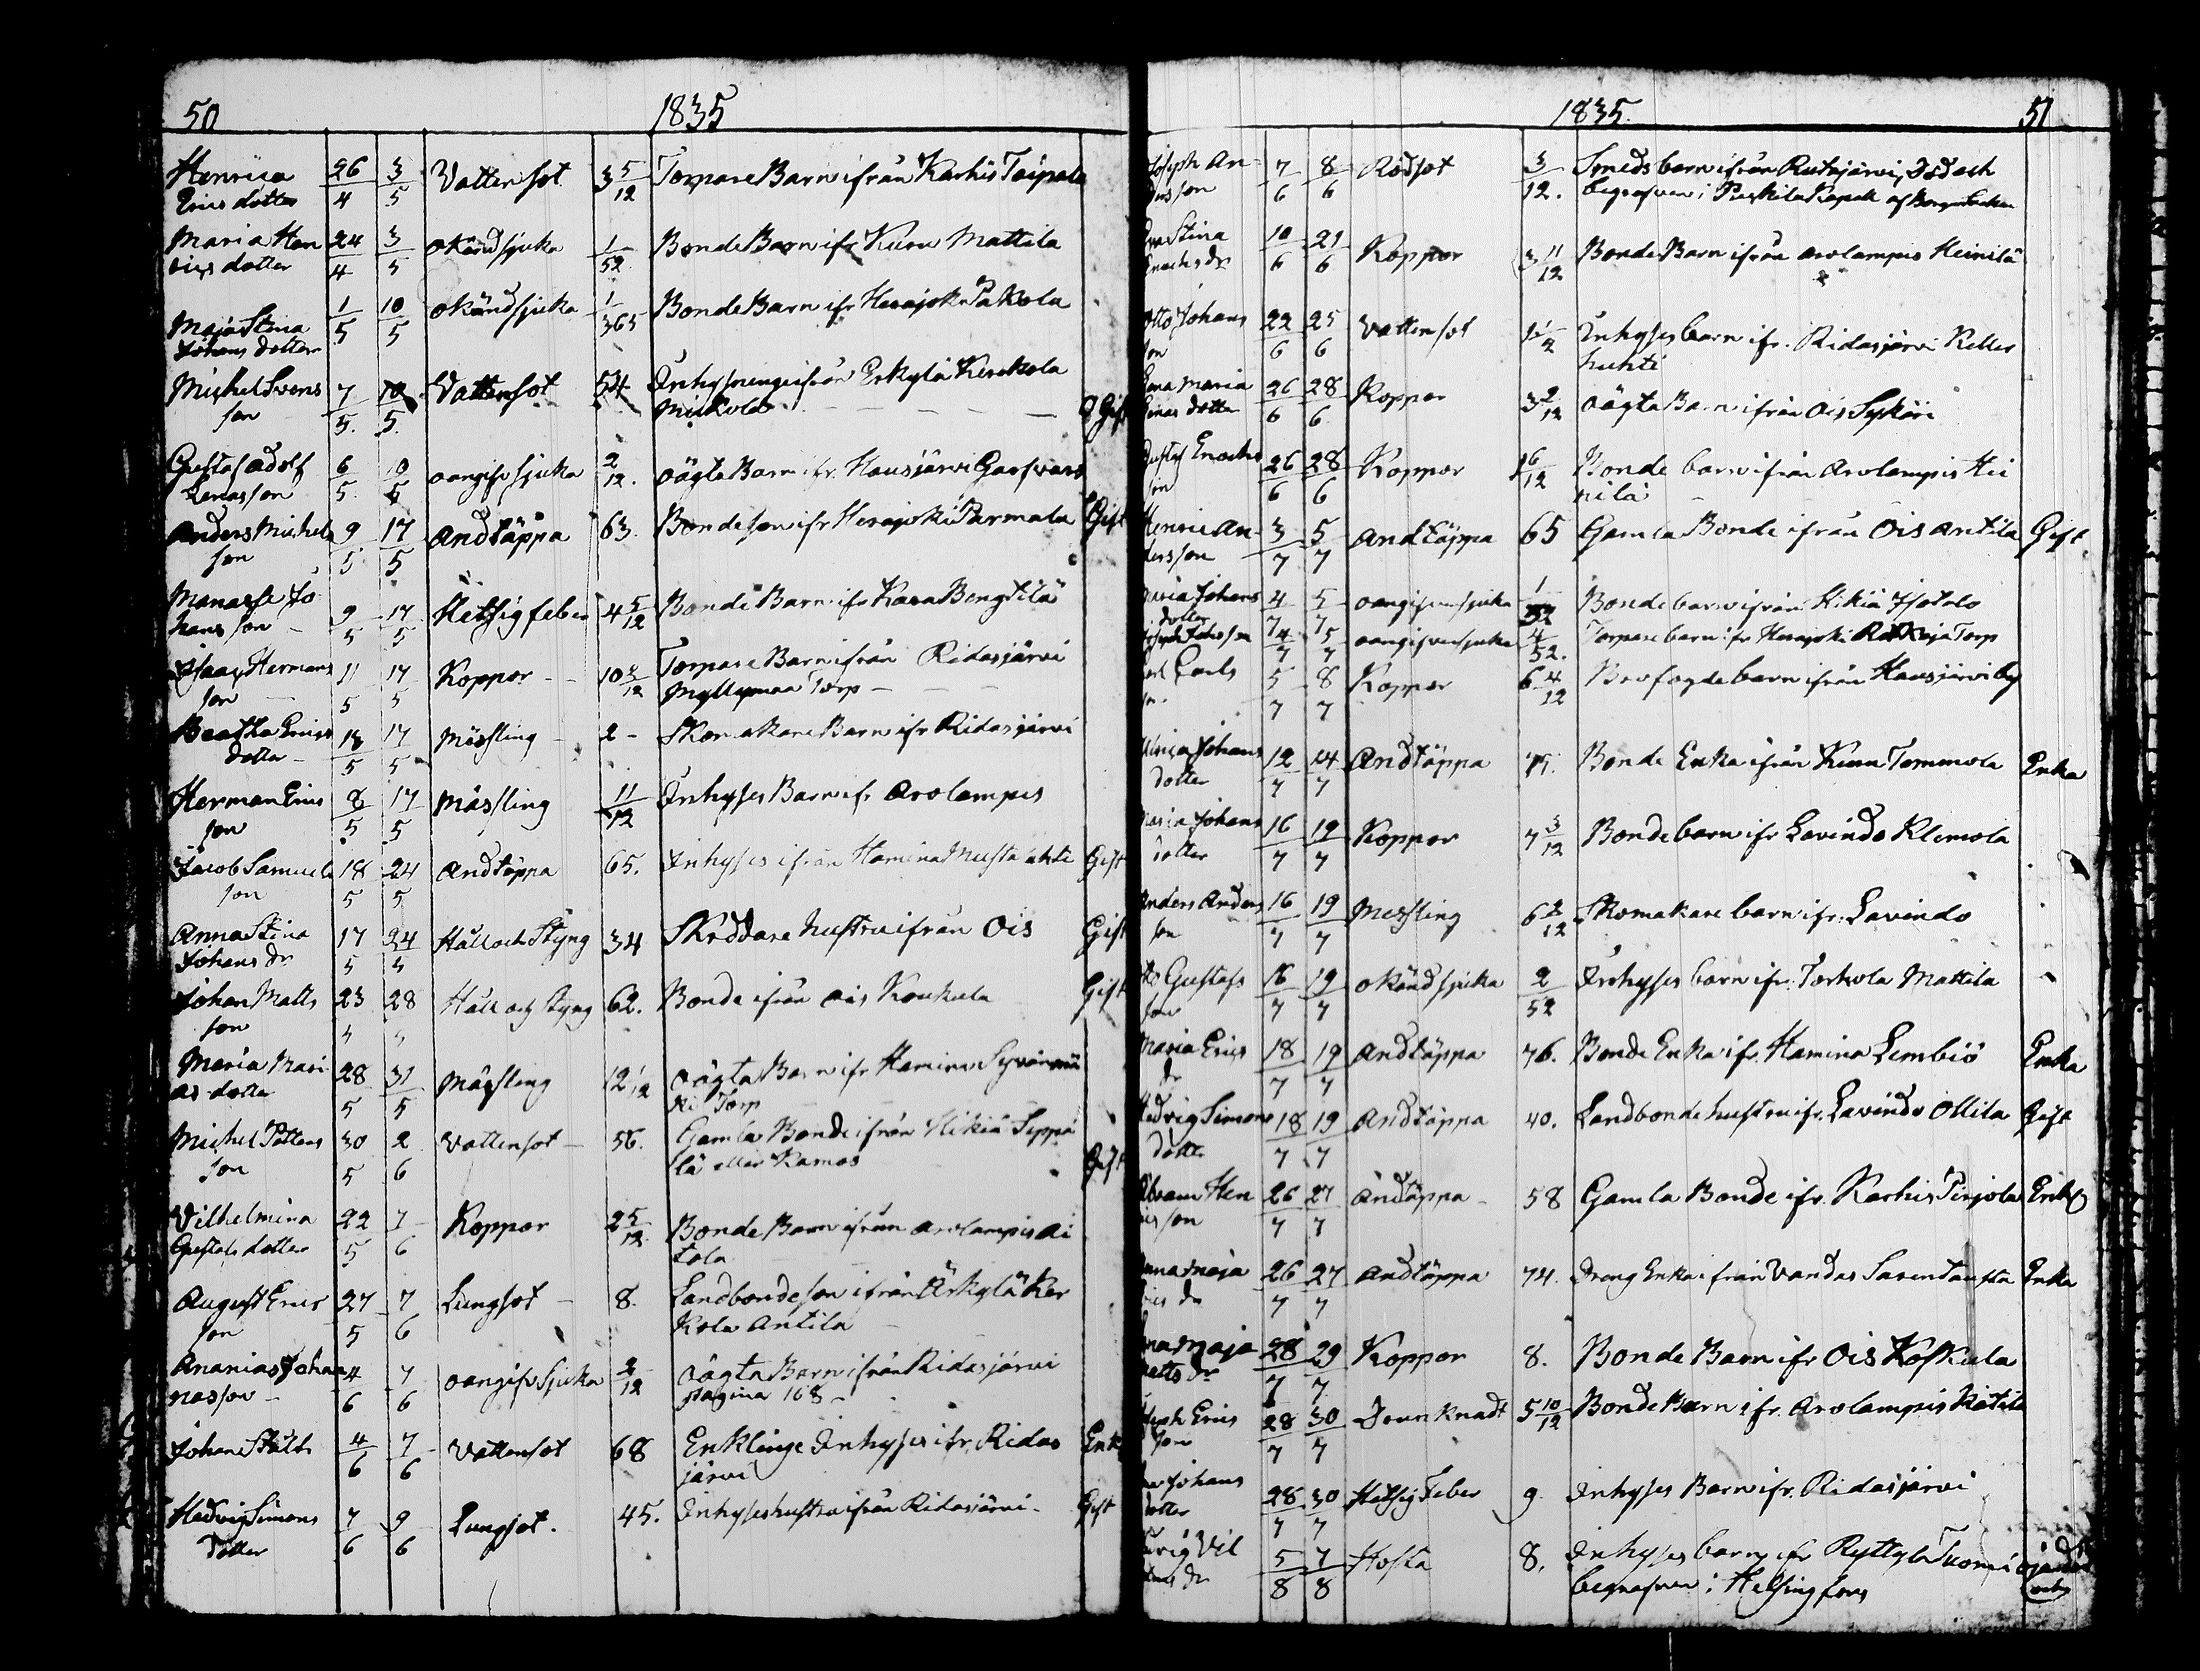 50 1835
Henrica 26/4 3/5 Vattensot 3 5/12 Torpare Barn ifrån Karhis Taipale
Erics dotter
Maria Hen 24/4 3/5 okänd sjuka 1/52 Bonde Barn ifr Kuru Mattila
rics dotter
Maja Stina 1/5 10/5 okänd sjuka 1/365 Bonde Barn ifr Herajoki Pakola
Johans dotter
Michel Svens 7/5 10/5 Vattensot 54 Inhysning ifrån Erkylä Kerckola
son Miskola Gift
Gustaf Adolf 6/5 10/5 oangifv sjuka 2/12 oägta Barn ifr. Hausjärvi
Lenasson
Anders Michels 9/5 17/5 Andtäppa 63 Bondeson ifr Herajoki Parmala Gift
son
Manasse Jo 9/5 17/5 Hetsig feber 4 5/12 Bonde Barn ifr Kara Bengtilä
hans son
Isaac Hermans 11/5 17/5 Koppor 10 3/12 Torpare Barn ifrån Ridasjärvi
son Myllymaa Torp
Beatha Erics 13/5 17/5 Mässling 2 Skomakare Barn ifr Ridasjärvi
dotter
Herman Erics 8/5 17/5 Mässling 11/12 Inhyses Barn ifr Arolampis
son
Jacob Samuels 18/5 24/5 Andtäppa 65. Inhyses ifrån Hamina Gift
son
Anna Stina 17/5 24/5 Håll och Styng 34 Skräddare hustru ifrån Ois Gift
Johans dr
Johan Matts 23/5 28/5 Håll och Styng 62. Bonde ifrån Ois Koukula Gift
son
Maria Mari 28/5 31/5 Mässling 12 1/12 oägta Barn ifr Hamina
as dotter ki Torp
Michel Petters 30/5 2/6 Vattensot 56. Gamla Bonde ifrån Hikiä Seppä
son lä eller Ramas Gift
Vilhelmina 22/5 7/6 Koppor 2 5/12 Bonde Barn ifrån Arolampis Ai
Gustafs dotter tola
August Erics 27/5 7/6 Lungsot 8. Landbonde son ifrån Ärkylä Ker
son kola Antila
Ananias Johan 4/6 7/6 oangifv Sjuka 2/12 oägta Barn ifrån Ridasjärvi
nasson pagina 168
Johan Stålt 4/6 7/6 Vattensot 68 Enkling Inhyses ifr. Ridas Enk
järvi
Hedvig Simons 7/6 9/6 Lungsot. 45. Inhyses hustru ifrån Ridasjärvi Gift
Dotter
1835. 51
Joseph An 7/6 8/6 Rödsot 3/12. Smeds barn ifrån Rutajärvi, Död och
son begrafven i Kapell af
Stina 10/6 21/6 Koppor 3 11/12 Bonde Barn ifrån Arolampis Heinilä
Enochs dr
Otto Johans 22/6 25/6 Vattensot 1 1/2 Inhyses barn ifr. Ridasjärvi Keller
son huhti
Maria 26/6 28/6 Koppor 3 2/12 oägta Barn ifrån Ois Sykäri
dotter
Gustaf Enochs 26/6 28/6 Koppor 1 6/12 Bonde barn ifrån Arolampis Hei
son nilä
Henric An 3/7 5/7 Andtäppa 65 Gamla Bonde ifrån Ois Antila Gift
dersson
Maria Johans 4/7 5/7 oangifven sjuka 1/52 Bonde barn ifrån Hikiä Isotalo
dotter
Joseph Johsson 4/7 5/7 oangifven sjuka 4/52. Torpare barn ifr Herajoki Torp
Carls 5/7 8/7 Koppor 6 4/12 Brofogde barn ifrån Hausjärvi by
Ulrica Johans 12/7 14/7 Andtäppa 75. Bonde Enka ifrån Kuru Tommola Enka
dotter
Maria Johans 16/7 19/7 Koppor 7 3/12 Bonde barn ifr Lavindo Klemola
dotter
Anders Anders 16/7 19/7 Messling 6 2/12 Skomakare barn ifr. Lavindo
son
Gustafs 16/7 19/7 okänd sjuka 2/52 Inhyses barn ifr. Torhola Mattila
son
Maria Erics 18/7 19/7 Andtäppa 76. Bonde Enka ifr. Hamina Lembiö Enka
dr
Hedvig Simons 18/7 19/7 Andtäppa 40. Landbonde hustru ifr. Lavindo Ollila Gift
dotter
Abram Hen 26/7 27/7 Andtäppa 58 Gamla Bonde ifr. Karhis Pirjola Enkl
rics son
Anna Maja 26/7 27/7 Andtäppa 74. Dreng Enka ifrån Vandas Enka
Erics dr
Maja 28/7 29/7 Koppor 8. Bonde Barn ifr Ois Koskula
Matts dr
Joseph Erics 28/7 30/7 Drunknadt 5 10/12 Bonde Barn ifr. Arolampis
son
Johans 28/7 30/7 Hetsig Feber 9. Inhyses Barn ifr. Ridasjärvi
dotter
Vil 5/8 7/8 Hosta 8. Inhyses barn ifr Ryttylä Tuomi
dr begrafven i Helsingfors